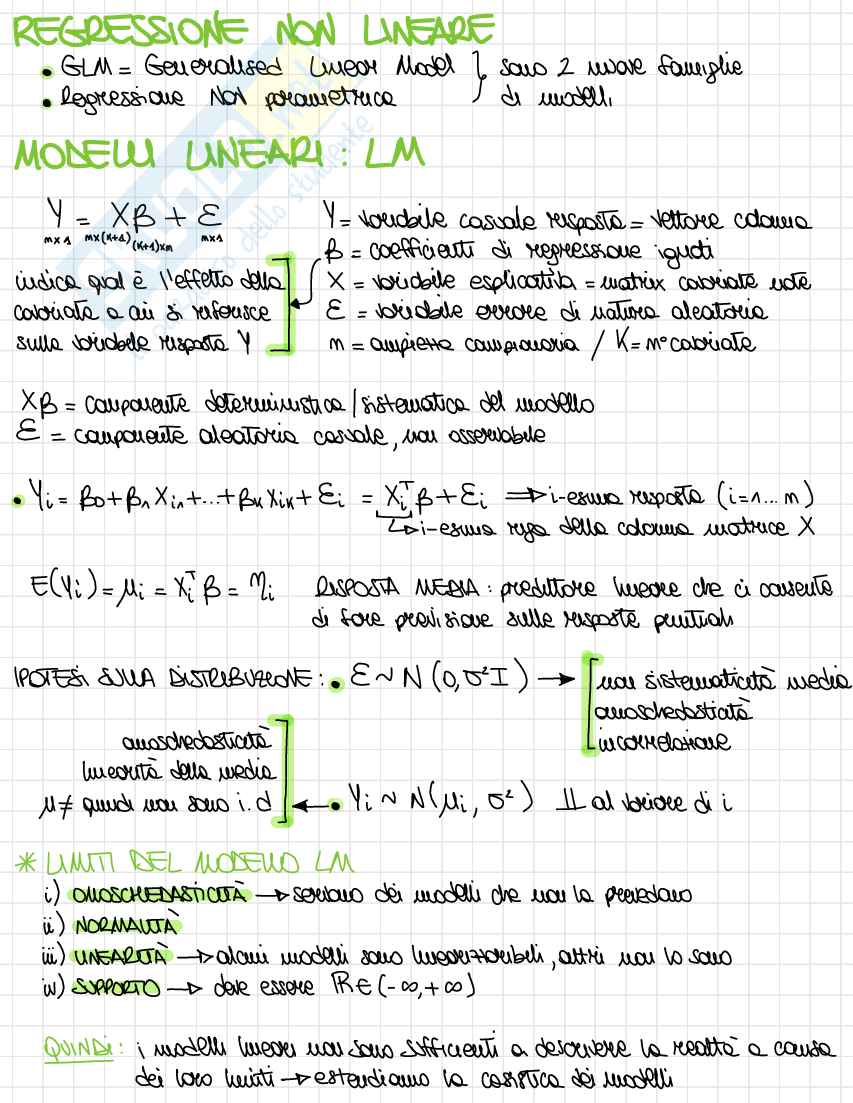 REGRESSIONE NON LINEARE
• GLM = Generalised Linear Model } sono 2 nuove famiglie
• Regressione NON parametrica } di modelli
MODELLI LINEARI : LM
Y = Xβ + ε
n×1 n×(K+1) (K+1)×n n×1
Y = variabile casuale risposta = vettore colonna
β = coefficienti di regressione ignoti
X = variabile esplicativa = matrix covariate note
ε = variabile errore di natura aleatoria
n = ampiezza campionaria / K = n° covariate
indica qual è l'effetto della
covariata a cui si riferisce
sulla variabile risposta Y
Xβ = componente deterministica / sistematica del modello
ε = componente aleatoria casuale, non osservabile
• Yi = β0 + β1 Xi1 + ... + βK XiK + εi = Xiᵀ β + εi ⇒ i-esima risposta (i = 1 ... n)
↳ i-esima riga della colonna matrice X
E(Yi) = μi = Xiᵀ β = ηi RISPOSTA MEDIA : predittore lineare che ci consente
di fare previsione sulle risposte puntuali
IPOTESI SULLA DISTRIBUZIONE : • ε ~ N(0, σ²I) → non sistematicità media
omoschedasticità
incorrelazione
omoschedasticità
linearità della media
μ ≠ quindi non sono i.d ← • Yi ~ N(μi, σ²) ⊥⊥ al variare di i
* LIMITI DEL MODELLO LM
i) OMOSCHEDASTICITÀ → servono dei modelli che non la prevedano
ii) NORMALITÀ
iii) LINEARITÀ → alcuni modelli sono linearizzabili, altri non lo sono
iv) SUPPORTO → deve essere ℝ ∈ (-∞, +∞)
QUINDI : i modelli lineari non sono sufficienti a descrivere la realtà a causa
dei loro limiti → estendiamo la casistica dei modelli